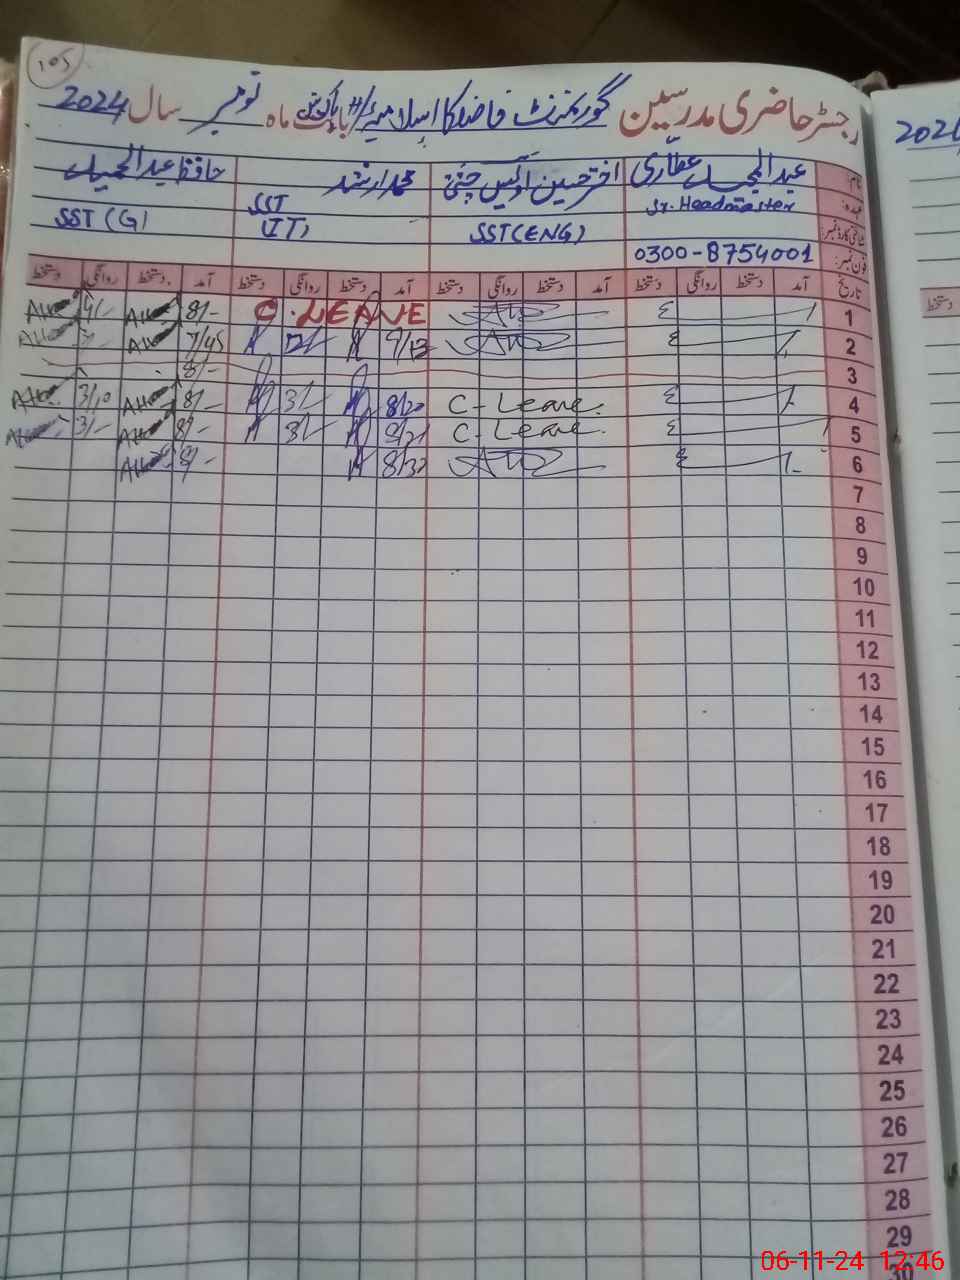 105
رجسٹر حاضری مدرسین گورنمنٹ فاضلکا اسلامیہ بابت ماہ نومبر سال 2024
2024
نام: عبدالمجید عطاری اختر حسین اویس چشتی محمد ارشد حافظ عبدالحمید
عہدہ: Sr. Headmaster SST (ENG) SST (IT) SST (G)
شناختی کارڈ نمبر:
فون نمبر: 0300-8754001
تاریخ آمد دستخط روانگی دستخط آمد دستخط روانگی دستخط آمد دستخط روانگی دستخط آمد دستخط روانگی دستخط
دستخط
1 C. LEAVE 8/- 4/-
2 9/13 12/- 7/45
3 8/-
4 C-Leave. 8/20 3/- 8/- 3/10
5 C-Leave. 8/21 3/- 8/- 3/-
6 8/32 8/-
7
8
9
10
11
12
13
14
15
16
17
18
19
20
21
22
23
24
25
26
27
28
29
30
06-11-24 12:46